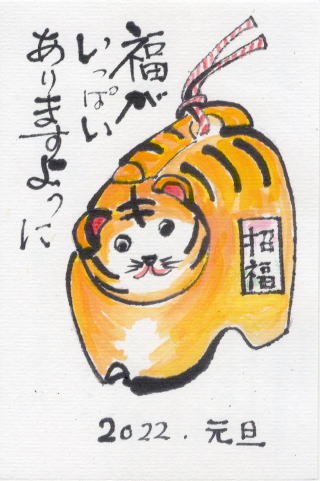 福が
いっぱい
ありますように
招福
2022. 元旦